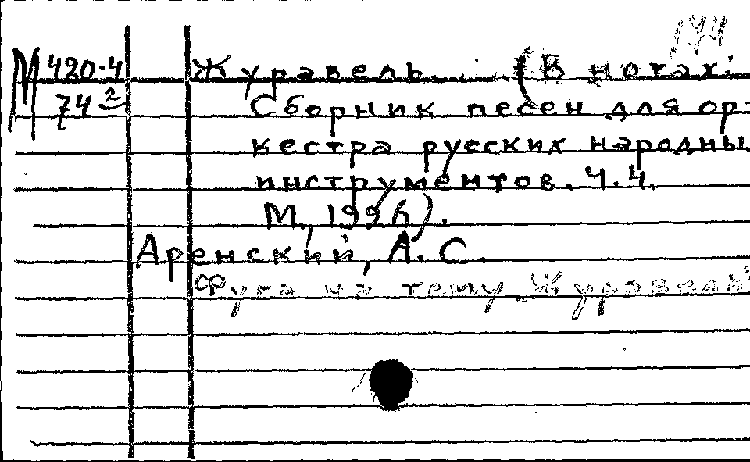 144
М 420-4 Журавель. (В нотах:
74 2 Сборник песен для ор-
кестра русских народны
инструментов. Ч.4.
М., 1996).
Аренский, А. С.
Фуга на тему "Журавель"